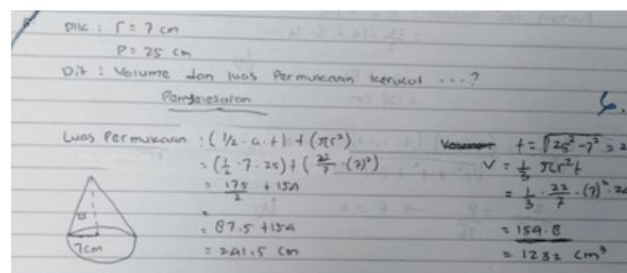 Dik : r = 7 cm
P = 25 cm
Dit : Volume dan luas Permukaan kerucut ...?
Penyelesaian
Luas Permukaan : (1/2 . a . t) + (πr²)
= (1/2 . 7 . 25) + (22/7 . (7)²)
= 175/2 + 154
=
= 87.5 + 154
= 241.5 cm
25
7cm
t = √25² - 7² = 2
V = 1/3 πr²t
= 1/3 . 22/7 . (7)² . 24
= 154 . 8
= 1232 cm³